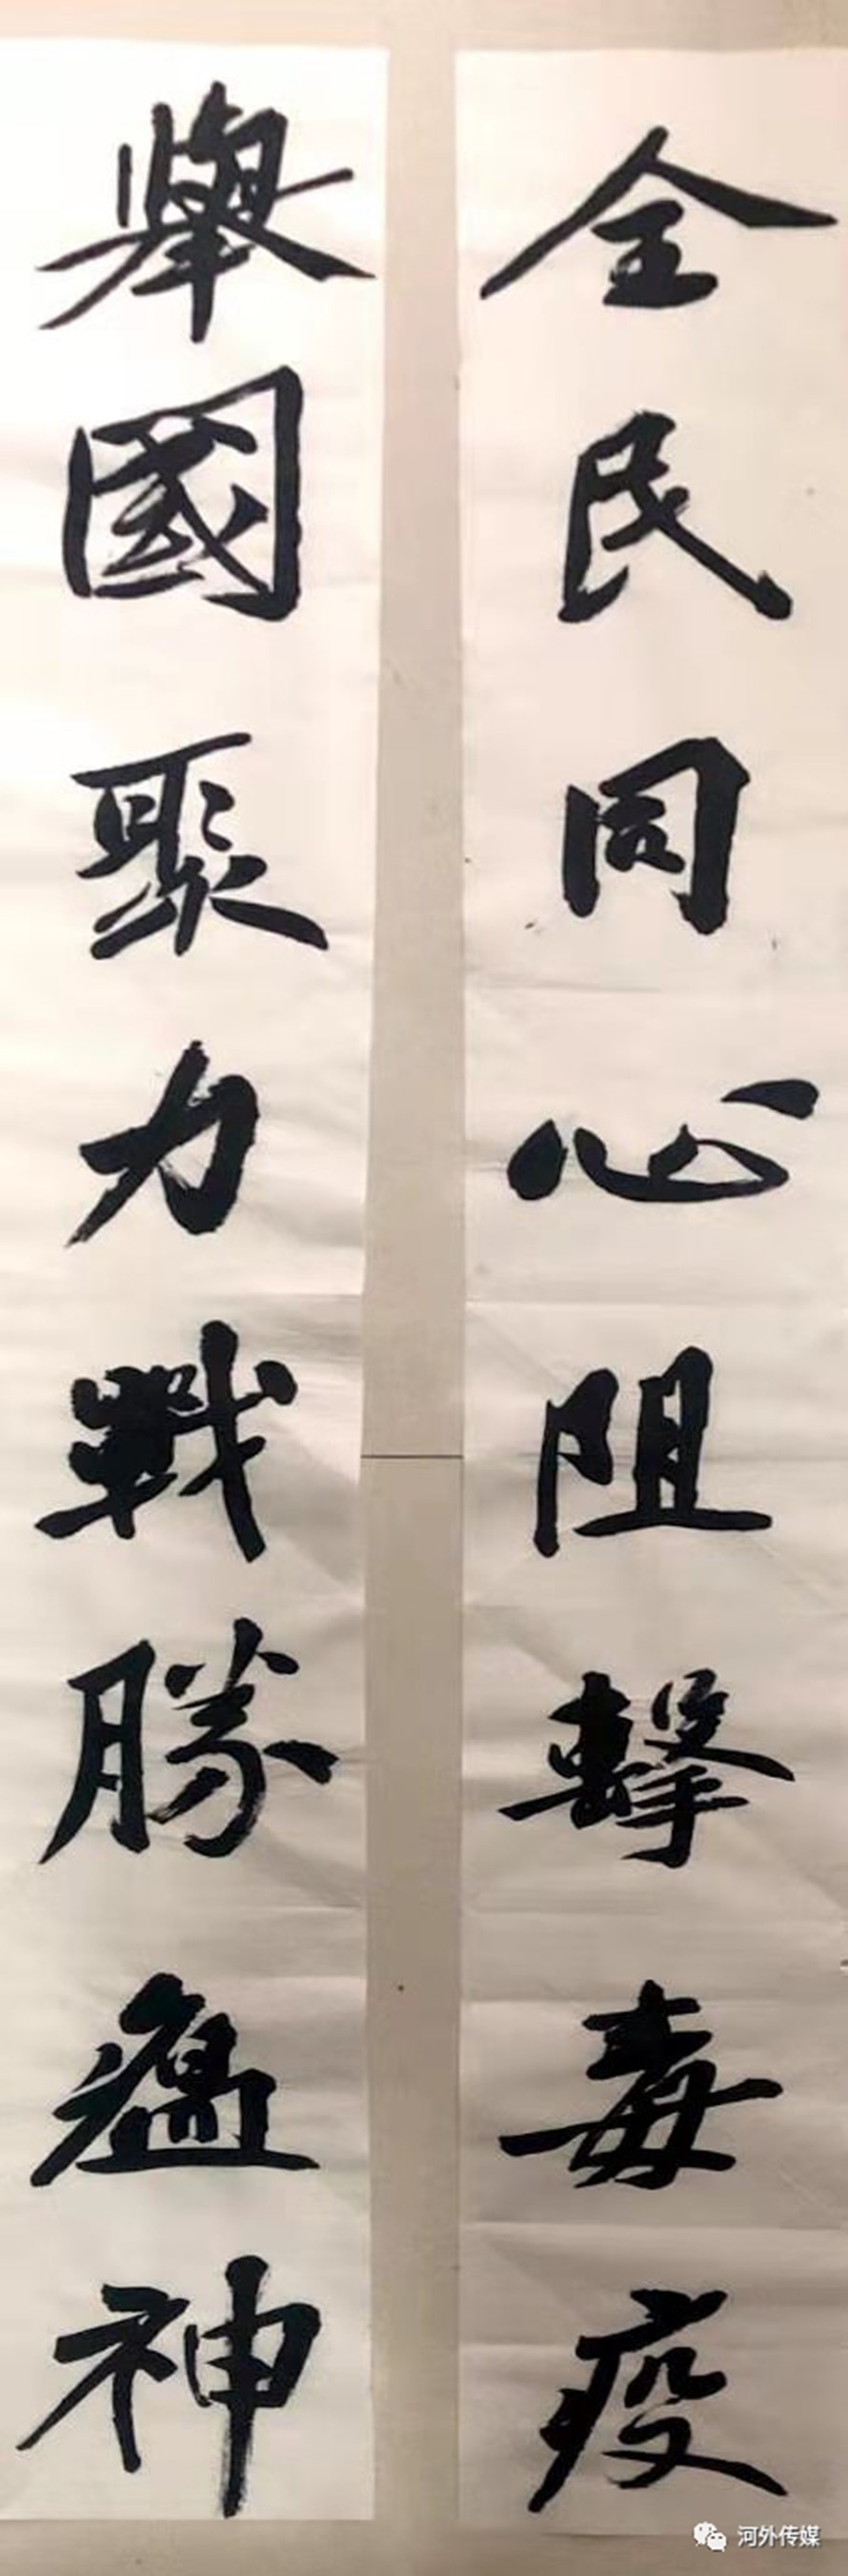 全民同心阻擊毒疫
舉國聚力戰勝瘟神
河外传媒